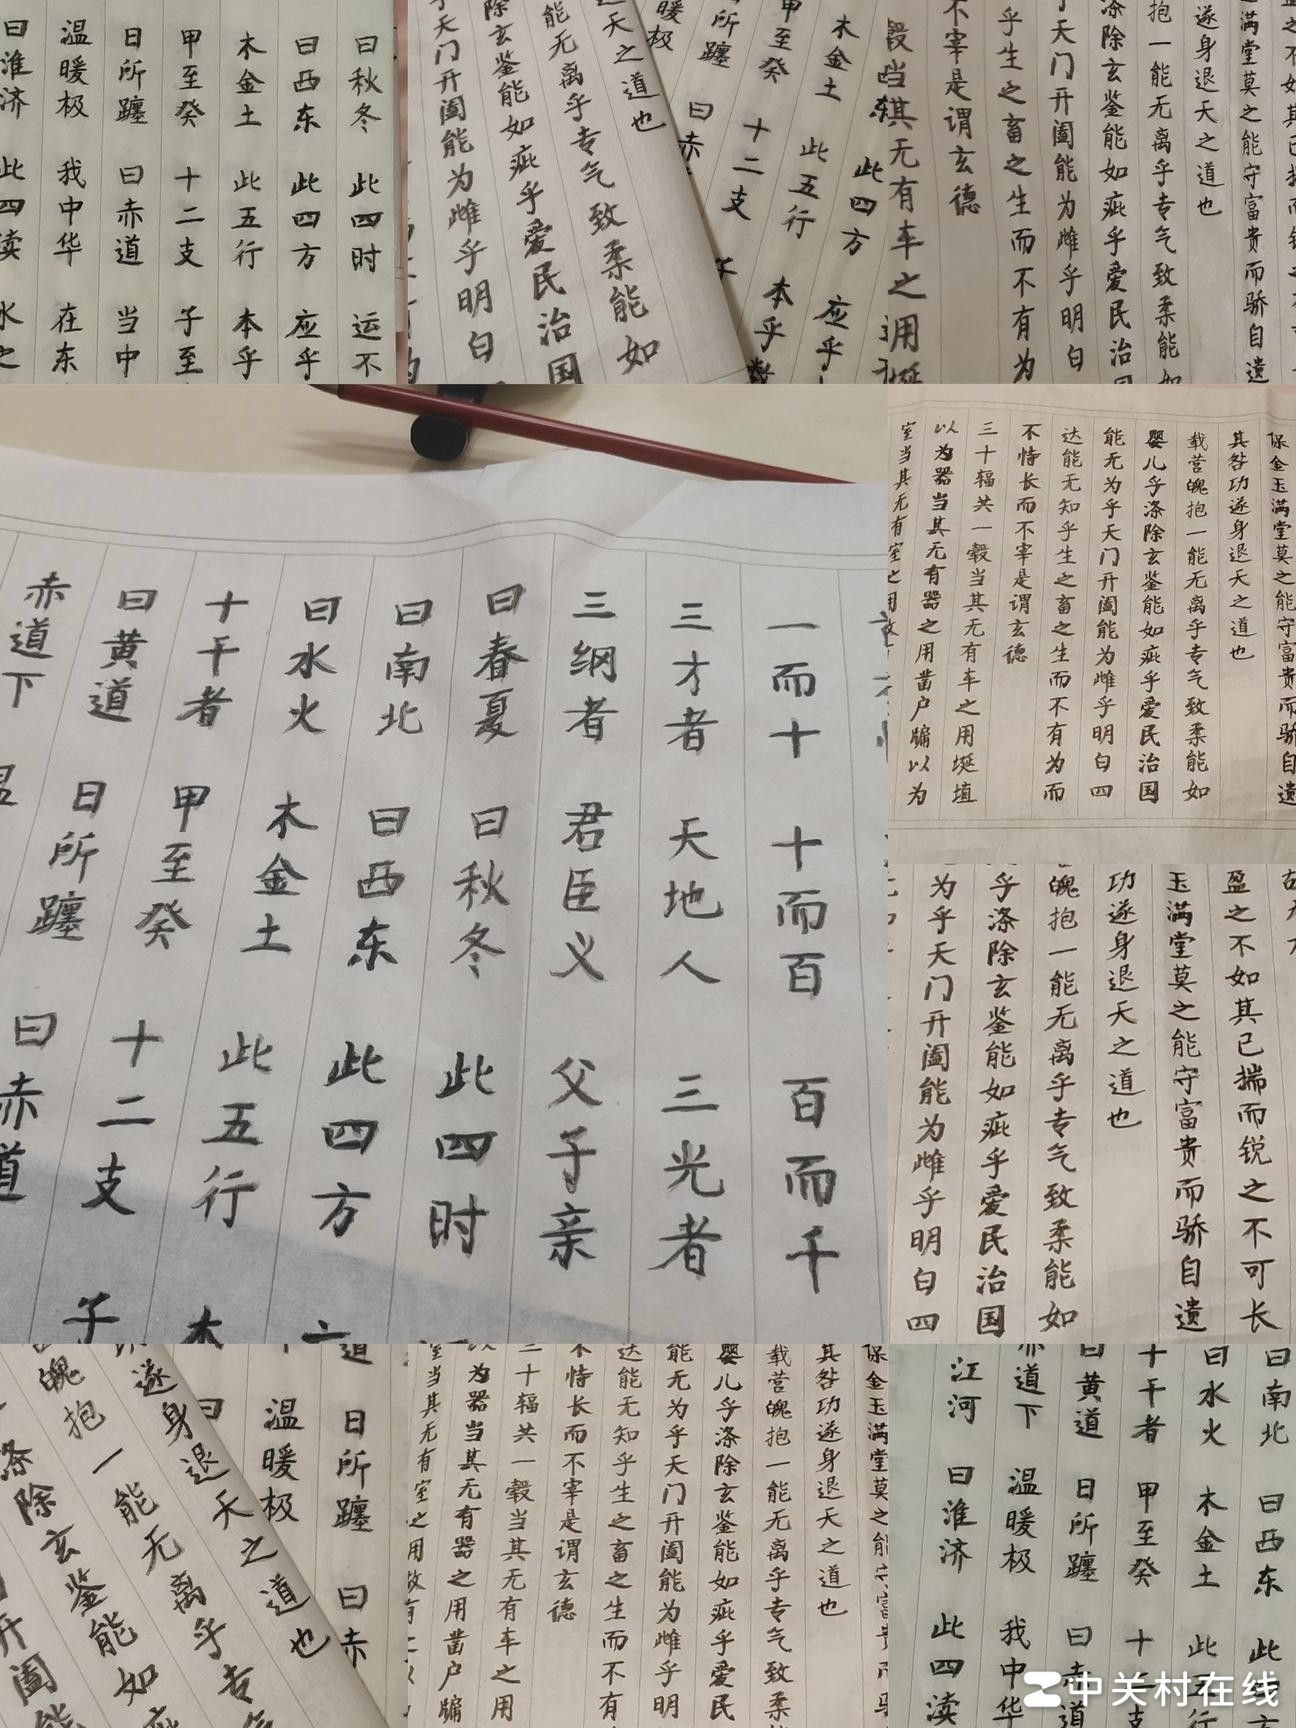 曰秋冬 此四时 运不
曰西东 此四方 应乎
木金土 此五行 本乎
甲至癸 十二支 子至
日所躔 曰赤道 当中
温暖极 我中华 在东
曰淮济 此四渎 水之
东 此四方 应乎
木金土 此五行 本乎数
甲至癸 十二支 子
日所躔 曰赤
暖极
天之道也
能无离乎专气致柔能如
除玄鉴能如疵乎爱民治国
乎天门开阖能为雌乎明白
之不如其已揣而锐
满堂莫之能守富贵而骄自遗
遂身退天之道也
抱一能无离乎专气致柔能如
涤除玄鉴能如疵乎爱民治国
乎天门开阖能为雌乎明白
乎生之畜之生而不有为
不宰是谓玄德
毂当其无有车之用埏
一而十 十而百 百而千
三才者 天地人 三光者
三纲者 君臣义 父子亲
曰春夏 曰秋冬 此四时
曰南北 曰西东 此四方 应
曰水火 木金土 此五行 本
十干者 甲至癸 十二支 子
曰黄道 日所躔 曰赤道
赤道下 温
保金玉满堂莫之能守富贵而骄自遗
其咎功遂身退天之道也
载营魄抱一能无离乎专气致柔能如
婴儿乎涤除玄鉴能如疵乎爱民治国
能无为乎天门开阖能为雌乎明白四
达能无知乎生之畜之生而不有为而
不恃长而不宰是谓玄德
三十辐共一毂当其无有车之用埏埴
以为器当其无有器之用凿户牖以为
室当其无有室之用故
盈之不如其已揣而锐之不可长
玉满堂莫之能守富贵而骄自遗
功遂身退天之道也
魄抱一能无离乎专气致柔能如
乎涤除玄鉴能如疵乎爱民治国
为乎天门开阖能为雌乎明白四
道 日所躔 曰赤
温暖极
曰
遂身退天之道也
魄抱一能无离乎专气
涤除玄鉴能如疵
开阖能
保金玉满堂莫之能守富贵而骄
其咎功遂身退天之道也
载营魄抱一能无离乎专气致柔
婴儿乎涤除玄鉴能如疵乎爱民
能无为乎天门开阖能为雌乎明
达能无知乎生之畜之生而不有
不恃长而不宰是谓玄德
三十辐共一毂当其无有车之用
以为器当其无有器之用凿户牖
室当其无有室之用故有之以
曰南北 曰西东 此四方
曰水火 木金土 此五行
十干者 甲至癸 十二支
曰黄道 日所躔 曰赤道
赤道下 温暖极 我中华
江河 曰淮济 此四渎
中关村在线